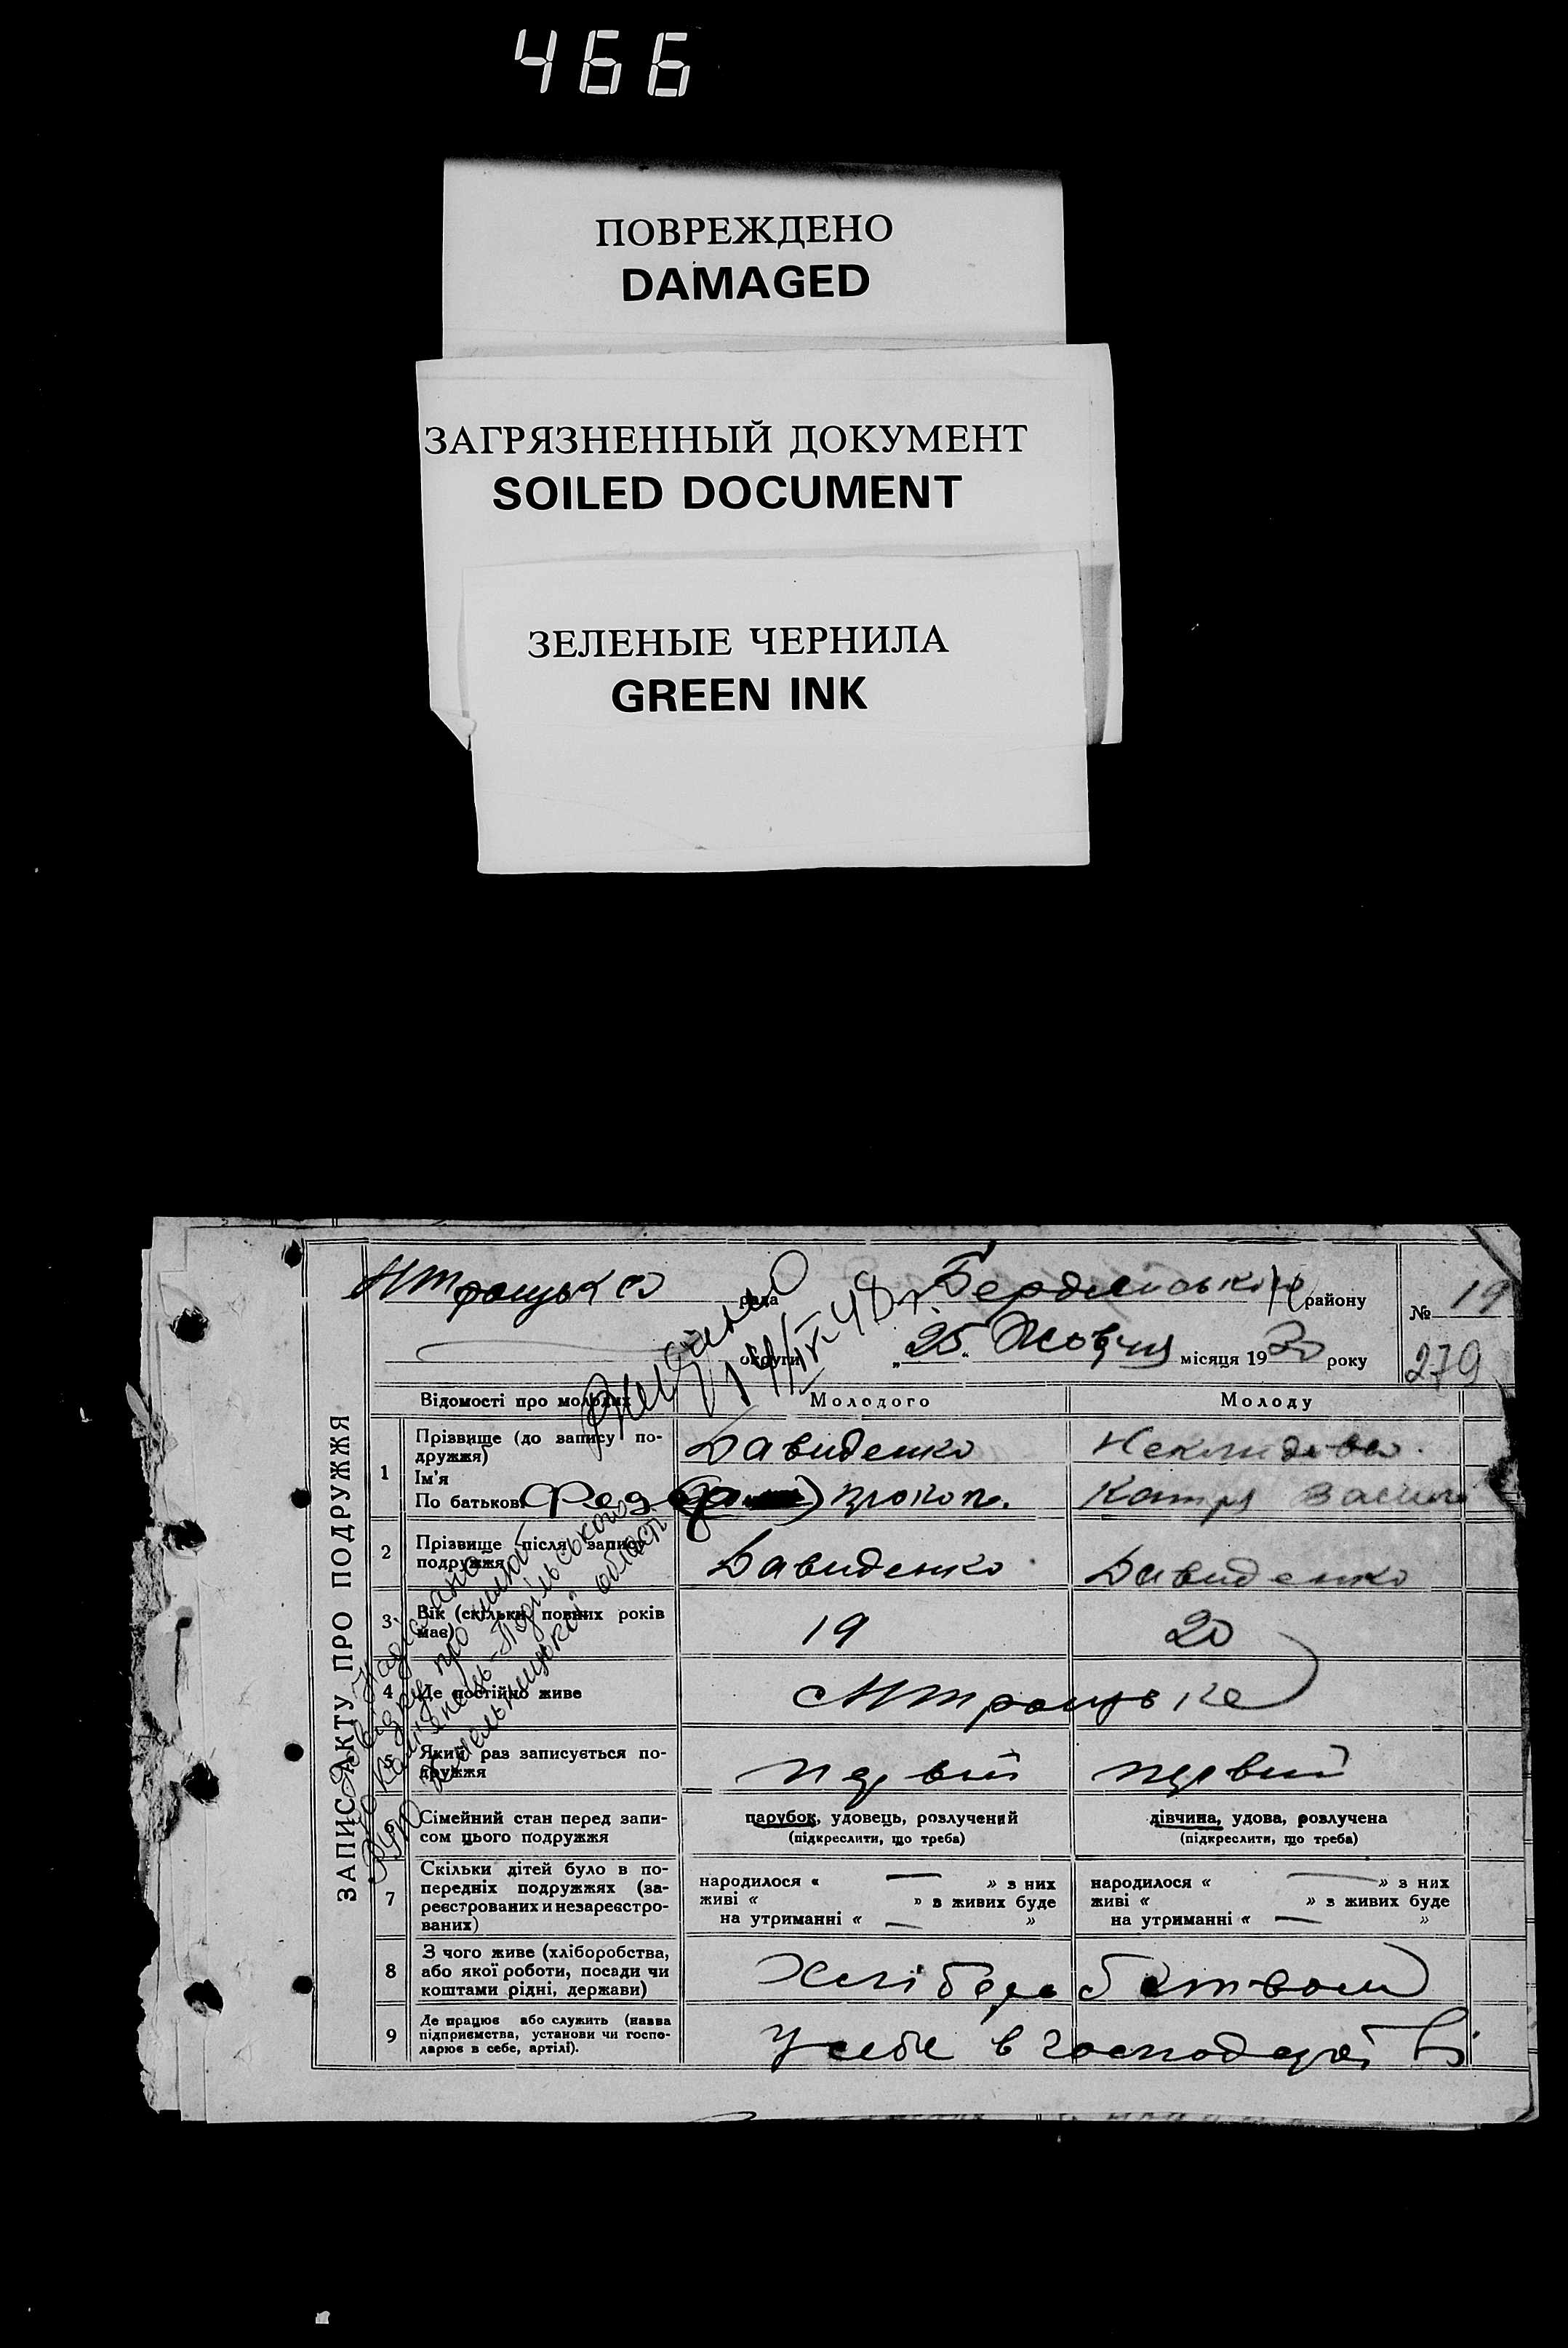 466
ПОВРЕЖДЕНО
DAMAGED
ЗАГРЯЗНЕННЫЙ ДОКУМЕНТ
SOILED DOCUMENT
ЗЕЛЕНЫЕ ЧЕРНИЛА
GREEN INK
ЗАПИС АКТУ ПРО ПОДРУЖЖЯ
рада Бердянського району № 19
округи „25“ Жовтня місяця 1930 року 279
Відомості про молодих Молодого Молоду
1 Прізвище (до запису подружжя) Давиденко
Ім'я
По батькові Фед Прокоп. Катря Васил
2 Прізвище після запису подружжя Давиденко Давиденко
3 Вік (скільки повних років має) 19 20
4 Де постійно живе
5 Який раз записується подружжя первий первий
6 Сімейний стан перед записом цього подружжя парубок, удовець, розлучений (підкреслити, що треба) дівчина, удова, розлучена (підкреслити, що треба)
7 Скільки дітей було в попередніх подружжях (зареєстрованих и незареєстрованих) народилося « — » з них живі « » з живих буде на утриманні « — » народилося « — » з них живі « » з живих буде на утриманні « — »
8 З чого живе (хліборобства, або якої роботи, посади чи коштами рідні, держави) Хліборобством
9 Де працює або служить (назва підприємства, установи чи господарює в себе, артілі). У себе в господарстві
Кам'янець-Подільського
області